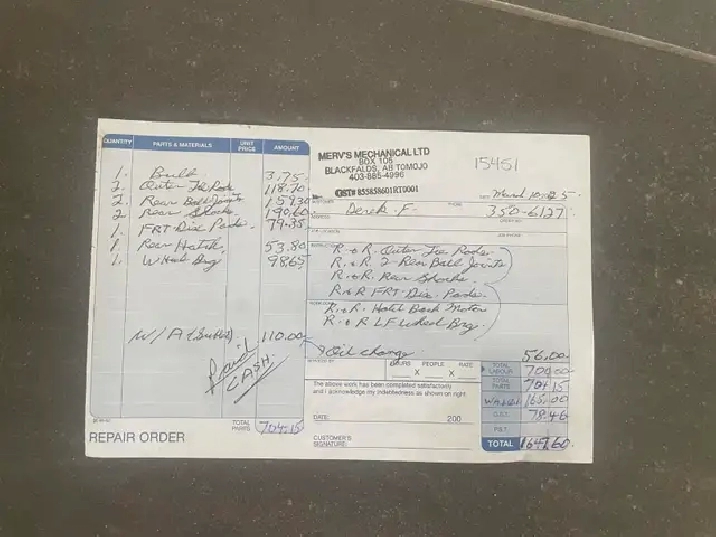 QUANTITY PARTS & MATERIALS UNIT PRICE AMOUNT
1. Bulb 3.75
2. Outer Tie Rods 118.70
2. Rear Ball Joints 159.30
2 Rear Shocks 190.60
1. FRT Disc Pads. 79.35
1. Rear Hatch. 53.80
1. W Brg 98.65
W/A 110.00
Paid
CASH.
TOTAL PARTS 704.15
REPAIR ORDER
MERV'S MECHANICAL LTD
BOX 106
BLACKFALDS, AB T0M0J0
403-885-4996
GST# 855858601RT0001
15451
DATE March 10
Derek F. PHONE 350-6127
ADDRESS
R. & R. Outer Tie Rods.
R. & R. 2 Rear Ball Joints
R. & R. Rear Shocks.
R & R FRT. Disc. Pads.
R. & R. Hatch Back Motor
R. & R LF Wheel Brg.
Oil change 56.00
HOURS PEOPLE RATE
X X
TOTAL LABOUR 700.00
TOTAL PARTS 704.15
165.00
G.S.T. 78.46
P.S.T.
TOTAL 1647.60
The above work has been completed satisfactorily
and I acknowledge my indebtedness as shown on right
DATE: 200
CUSTOMER'S
SIGNATURE: